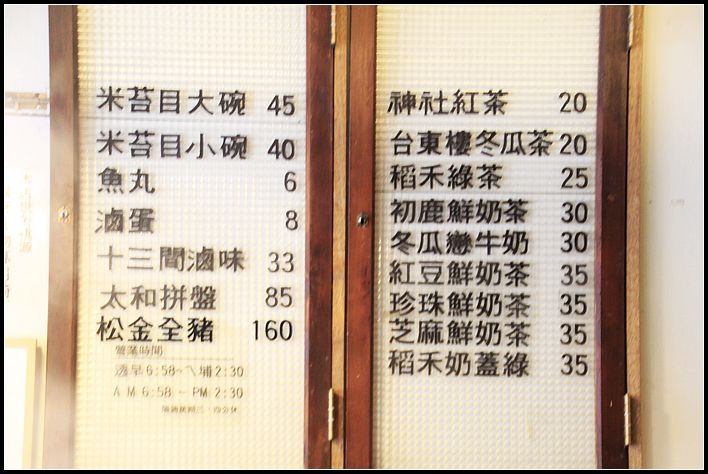 米苔目大碗 45
米苔目小碗 40
魚丸 6
滷蛋 8
十三間滷味 33
太和拼盤 85
松金全豬 160
營業時間
透早6:58~ㄟ埔2:30
AM 6:58 ~ PM-2:30
神社紅茶 20
台東樓冬瓜茶 20
稻禾綠茶 25
初鹿鮮奶茶 30
冬瓜戀牛奶 30
紅豆鮮奶茶 35
珍珠鮮奶茶 35
芝麻鮮奶茶 35
稻禾奶蓋綠 35